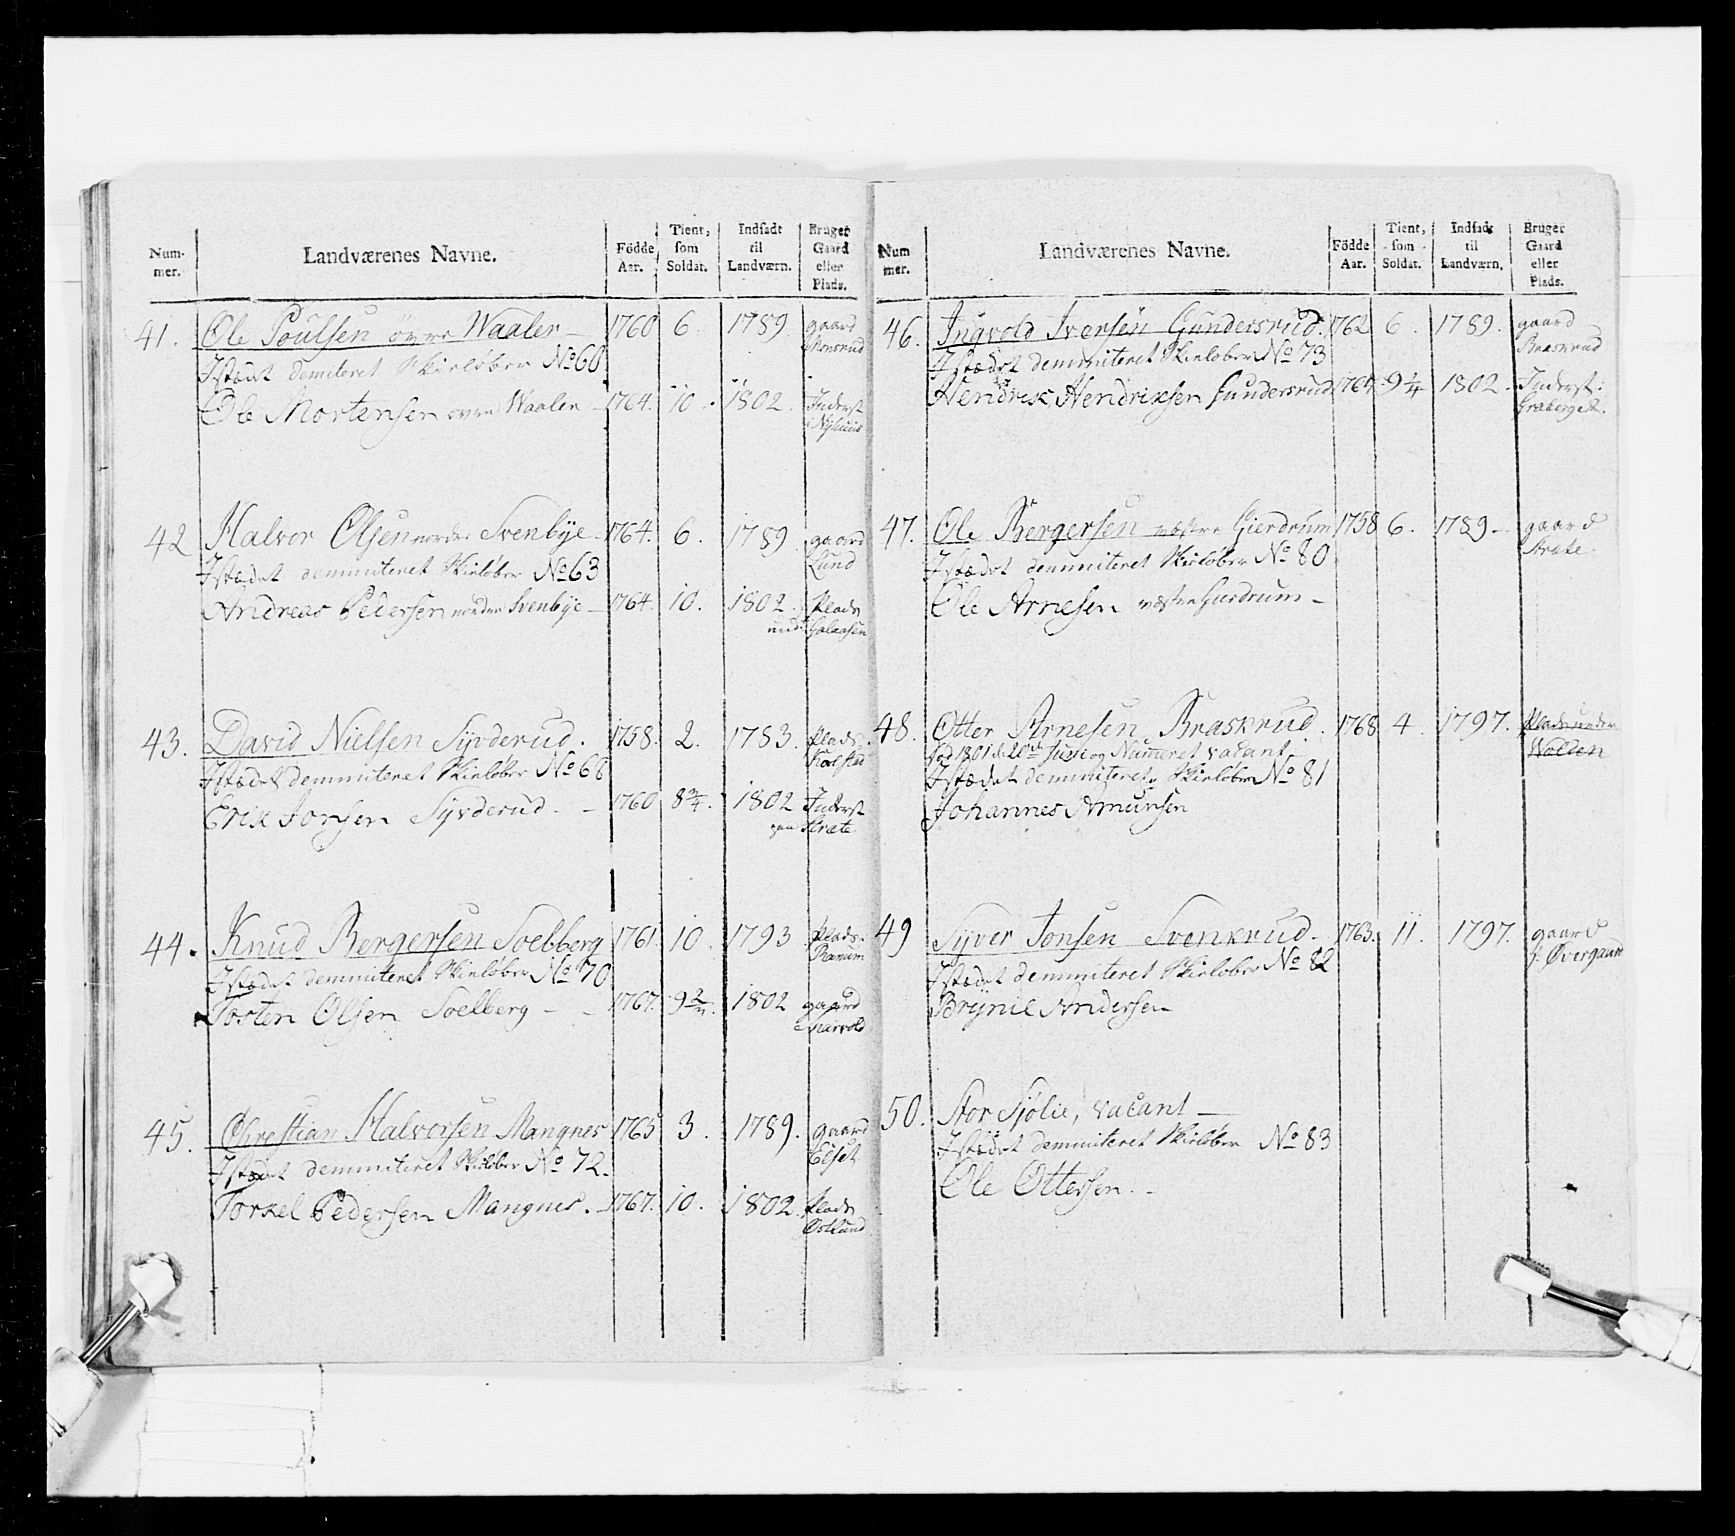 Num-
mer.
Landværenes Navne.
Födde
Aar.
Tient,
som
Soldat.
Indsadt
til
Landværn.
Bruger
Gaard
eller
Plads.
41. Ole Poulsen övre Waaler – 1760 6. 1789 gaard
Monsrud
Istædet demiteret Skielöber No 60
Ole Mortensen övre Waaler – 1764. 10. 1802. Inderst
Nyhuus
42 Halvor Olsen nordre Svenbÿe – 1764. 6. 1789 gaard
Lund
Istædet demmiteret Skielöber No 63
Andreas Pedersen nordre Svenbÿe – 1764. 10. 1802. Plads
und: Galaasen
43. David Nielsen Sÿvderud. 1758. 2. 1783. Plads
Istædet demmiteret Skielöber No 68
Erik Jonsen Sÿvderud. – 1760 8 3/4. 1802 Inderst
paa Stræte
44. Knud Bergersen Soelberg 1761 10. 1793 Plads.
Ranum
Istædet demmiteret Skielöber No 70
Tosten Olsen Soelberg – – 1767. 1802 gaard
45. Christian Halvorsen Mangnes 1765 3. 1789. gaard
Istædet demmiteret Skielöber No 72.
Torkel Pedersen Mangnes. – 1767. 10. 1802. Plads
Östlund
Num
mer.
Landværenes Navne.
Födde
Aar.
Tient,
som
Soldat.
Indsadt
til
Landværn.
Bruger
Gaard
eller
Plads.
46. Ingvold Iversen Gundersrud. 1762 6. 1789. gaard
Braskrud
Istædet demmiteret Skielöber No 73
Hendrik Hendriksen Gundersrud 1767. 9 1/4 1802. Inderst:
Graberget.
47. Ole Bergersen vestre Gierdrum 1758 6. 1789 – gaard
Stræte
Istædet demmiteret Skielöber No 80
Ole Arnesen vestre Gierdrum –
48. Otter Arnesen Braskrud. 1768 4. 1797. Plads under
Wolden
1801 d: 20de Nummeret vacant
Istædet demmiteret Skielöber No 81
Johannes Amunsen
49 Syver Jonsen Svenkrud. 1763. 11. 1797. gaard
Övergaard
Istædet demmiteret Skielöber No 82
Brÿnil Andersen
50. Stor Sjölie, vacant –
Istædet demmiteret Skielöber No 83
Ole Ottersen. –